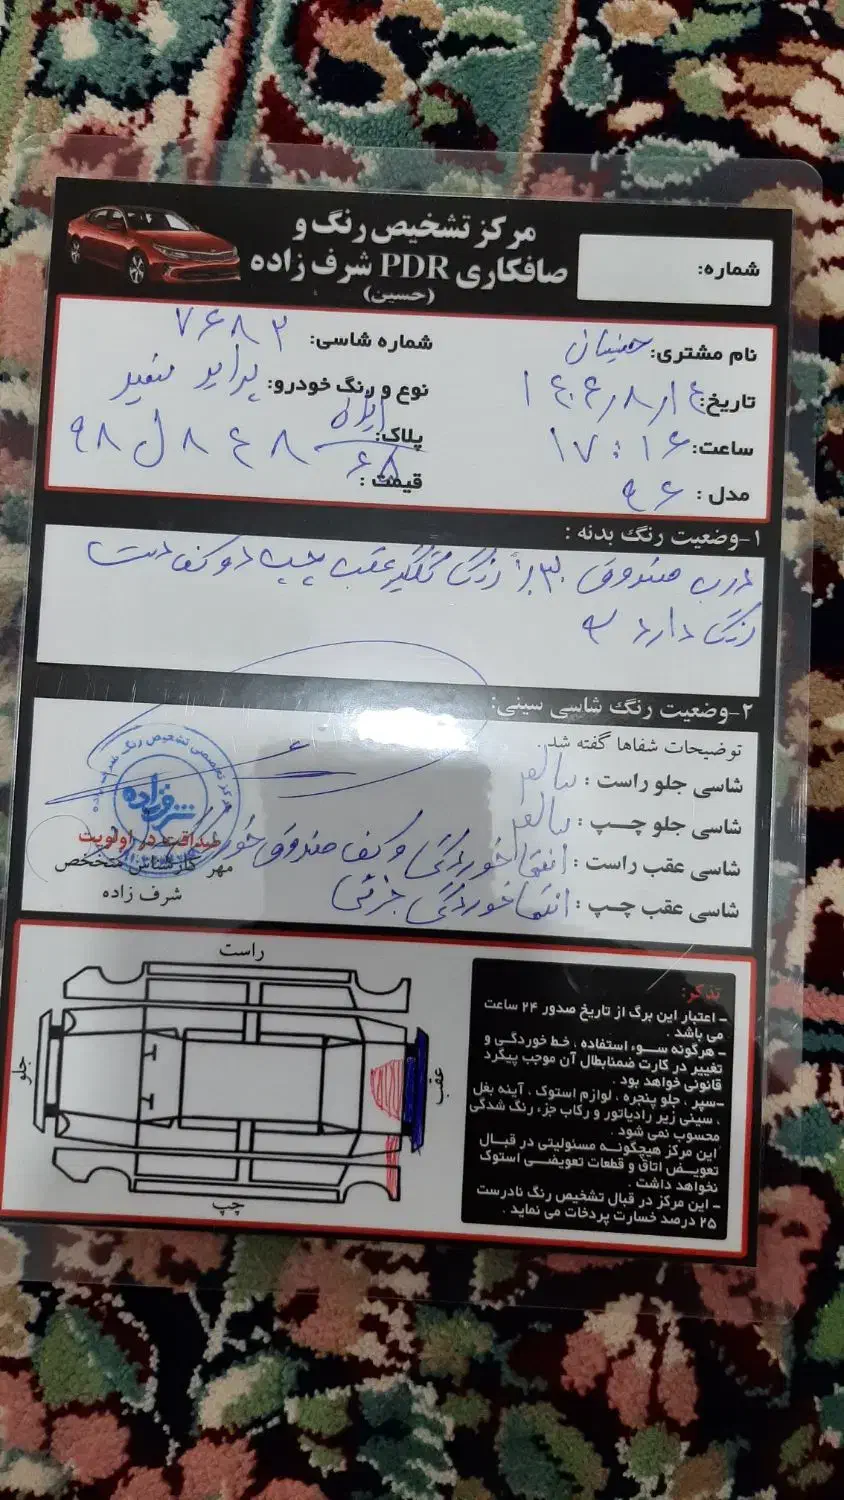 مرکز تشخیص رنگ و
صافکاری PDR شرف زاده
(حسین)
شماره:
نام مشتری:
شماره شاسی: ۷۶۸۳
تاریخ:
نوع و رنگ خودرو: پراید سفید
ساعت: ۱۷:۱۶
پلاک: ۹۸ ل ۸۴۸ ایران ۶۸
مدل: ۹۶
قیمت:
۱-وضعیت رنگ بدنه:
درب صندوق ۳۰٪ رنگ گلگیر عقب چپ دو کف دست
رنگ دارد
۲-وضعیت رنگ شاسی سینی:
توضیحات شفاها گفته شد.
شاسی جلو راست: سالم
شاسی جلو چـــپ: سالم
شاسی عقب راست: انتها خوردگی و کف صندوق خوردگی
شاسی عقب چـپ: انتها خوردگی جزئی
شرف زاده
صداقت در اولویت
مهر کارشناس متخصص
شرف زاده
راست
جلو
عقب
چپ
تذکر:
– اعتبار این برگ از تاریخ صدور ۲۴ ساعت
می باشد.
– هرگونه سـوء استفاده، خط خوردگی و
تغییر در کارت ضمنابطال آن موجب پیگرد
قانونی خواهد بود.
–سپر، جلو پنجره، لوازم استوک، آینه بغل
، سینی زیر رادیاتور و رکاب جزء رنگ شدگی
محسوب نمی شود.
این مرکز هیچگونـه مسئولیتی در قبـال
تعویـض اتاق و قطعات تعویضـی استوک
نخواهد داشت.
– این مرکز در قبال تشخیص رنگ نادرست
۲۵ درصد خسارت پرداخت می نماید.